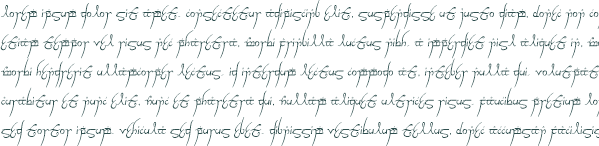 lorem ipsum dolor sit amet. consectetur adipiscing elit. suspendisse ut justo diam, donec non co
etiam tempor vel risus nec pharetra. morbi fringilla luctus nibh. a imperdiet nisl aliquet in.
morbi hendrerit ullamcorper lectus. id interdum lectus commodo at. integer nulla dui. volutpat
curabitur et nunc elit. nunc et pharetra dui. nullam aliquet ultricies risus. faucibus pretium lo
sed tortor ipsum. vehicula sed purus eget. dignissim vestibulum tellus. donec accumsan facilisis